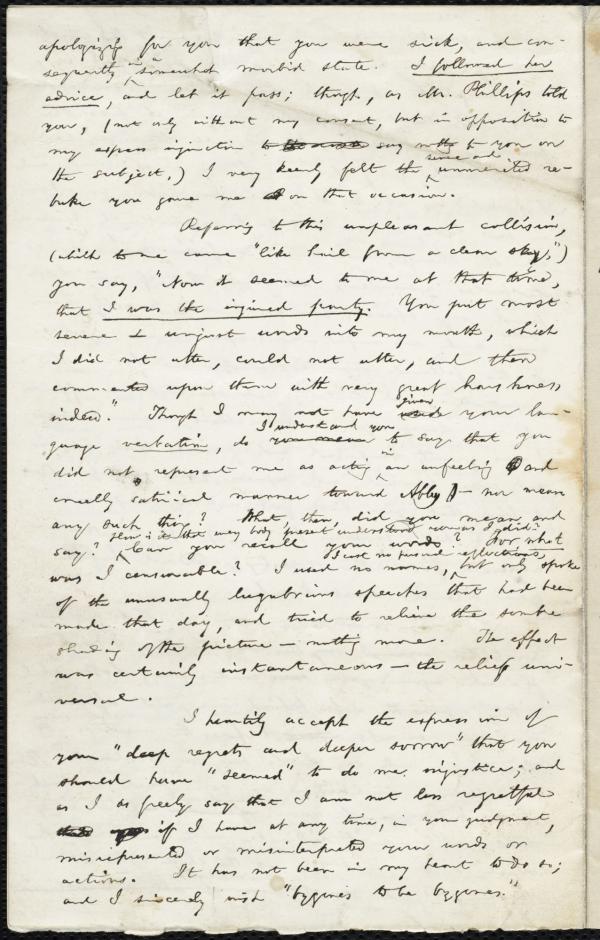 apologizing for you that you were sick, and con-
sequently in a somewhat morbid state. I followed her
advice, and let it pass; though, as Mr. Phillips told
you, (not only without my consent, but in opposition to
my express injunction to say nothing to you on
the subject,) I very keenly felt the severe and unmerited re-
buke you gave me on that occasion.
Referring to this unpleasant collision,
(which to me came "like hail from a clear sky,")
you say, "Now it seemed to me at that time,
that I was the injured party. You put most
severe & unjust words into my mouth, which
I did not utter, could not utter, and then
commented upon them with very great harshness
indeed." Though I may not have given your lan-
guage verbatim, do I understand you to say that you
did not represent me as acting in an unfeeling and
cruelly satirical manner toward Abby — nor mean
any such thing? What, then, did you mean and
say? How is it that every body present understood you as I did?
Can you recall your words? For what
was I censurable? I used no names, I cast no personal reflections, but only spoke
of the unusually lugubrious speeches that had been
made that day, and tried to relieve the sombre
shading of the picture — nothing more. The effect
was certainly instantaneous — the relief uni-
versal.
I heartily accept the expression of
your "deep regrets and deeper sorrow" that you
should have "seemed" to do me injustice; and
as I as freely say that I am not less regretful
if I have at any time, in your judgment,
misrepresented or misinterpreted your words or
actions. It has not been in my heart to do so;
and I sincerely wish "bygones to be bygones."